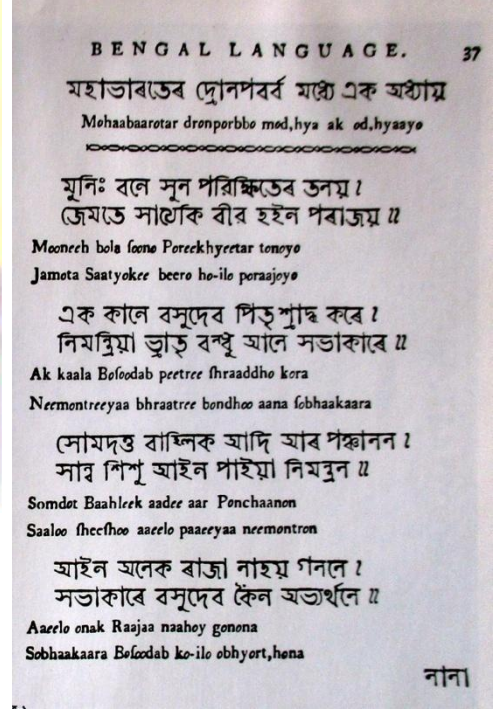 BENGAL LANGUAGE. 37
মহাভাৰতেৰ দ্রোনপৰর্ব মধ্যে এক অধ্যায়
Mohaabaarotar dronporbbo mod,hya ak od,hyaayo
মূনিঃ বলে সূন পরিক্ষিতেৰ তনয় ৷
জেমতে সাৰ্ত্যেকি বীৰ হইল পৰাজয় ৷৷
Mooneeh bola ſoono Poreekhyeetar tonoyo
Jamota Saatyokee beero ho-ilo poraajoyo
এক কালে বসূদেব পিতৃ শ্রাদ্ধ কৰে ৷
নিমন্ত্রিয়া ভ্রাতৃ বন্ধূ আনে সভাকাৰে ৷৷
Ak kaala Boſoodab peetree ſhraaddho kora
Neemontreeyaa bhraatree bondhoo aana ſobhaakaara
সোমদত্ত বাহ্লিক আদি আৰ পঞ্চানন ৷
সাল্ব শিশূ আইল পাইয়া নিমন্ত্রন ৷৷
Somdot Baahleek aadee aar Ponchaanon
Saaloo ſheeſhoo aaeelo paaeeyaa neemontron
আইল অনেক ৰাজা নাহয় গননে ৷
সভাকাৰে বসূদেব কৈল অভ্যর্থনে ৷৷
Aaeelo onak Raajaa naahoy gonona
Sobhaakaara Boſoodab ko-ilo obhyort,hona
নানা